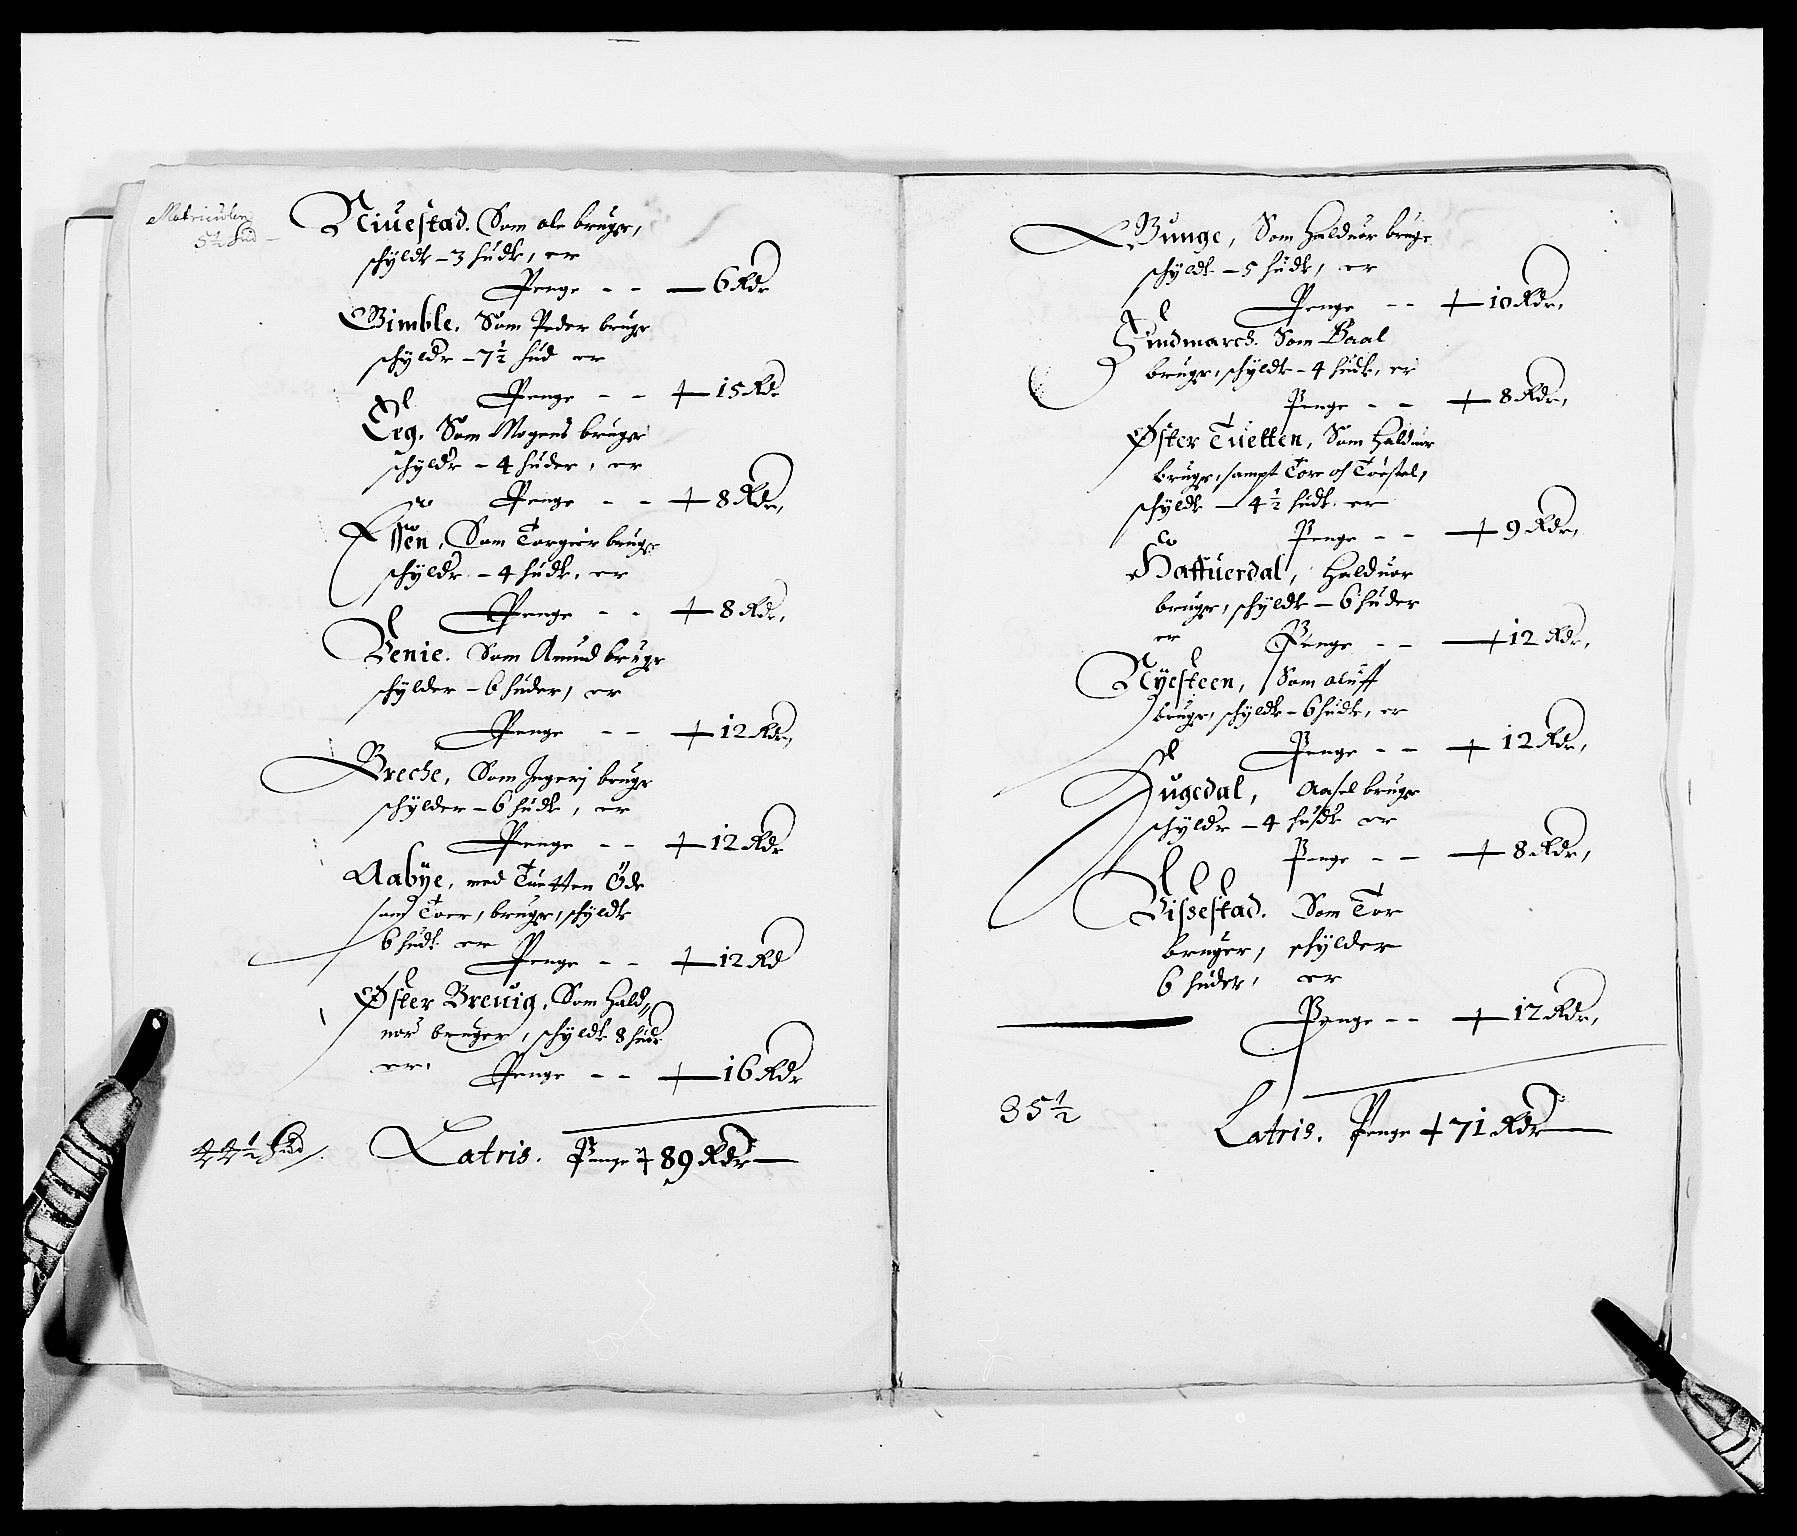 Matriculen
5½ hud
Niuestad. Som ole bruger,
schyldr - 3 huder, er
Penge - - 6 Rdr
Gimble. Som Peder bruger
schyldr - 7½ hud er
Penge - - 15 Rdr
Eeg. Som Mogens bruger
schyldr - 4 huder, er
Penge - - 8 Rdr,
Som Torgier bruger
schyldr - 4 huder, er
Penge - - 8 Rdr,
Venie. Som Amund bruger
schylder - 6 huder, er
Penge - - 12 Rdr,
Breche, Som Ingerj bruger
schylder - 6 huder, er
Penge - - 12 Rdr
Aabye, med Tuetten Öde
som Toer, bruger, schylder
6 huder er Penge - - 12 Rd
Øster Breuig. Som Hald,,
uor bruger, schylder 8 huder
er. Penge - - 16 Rdr
44½ hud Latris. Penge 89 Rdr
Bunge, Som Halduor bruger
schylder - 5 huder, er
Penge - - 10 Rdr,
Som Baal
bruger, schylder - 4 huder, er
Penge - - 8 Rdr,
Øster Tuetten, Som Halduor
bruger, sampt Tore och
schylder - 4½ huder. er
Penge - - 9 Rdr,
Haffuerdal, Halduor
bruger, schylder - 6 huder
er Penge - - 12 Rdr,
Nyesteen, Som oluff
bruger, schylder - 6 huder, er
Penge - - 12 Rdr,
Aasel bruger
schyldr - 4 huder er
Penge - - 8 Rdr,
Som Tor
bruger, schylder
6 huder, er
Penge - - 12 Rdr,
35½ Latris. Penge 71 Rdr